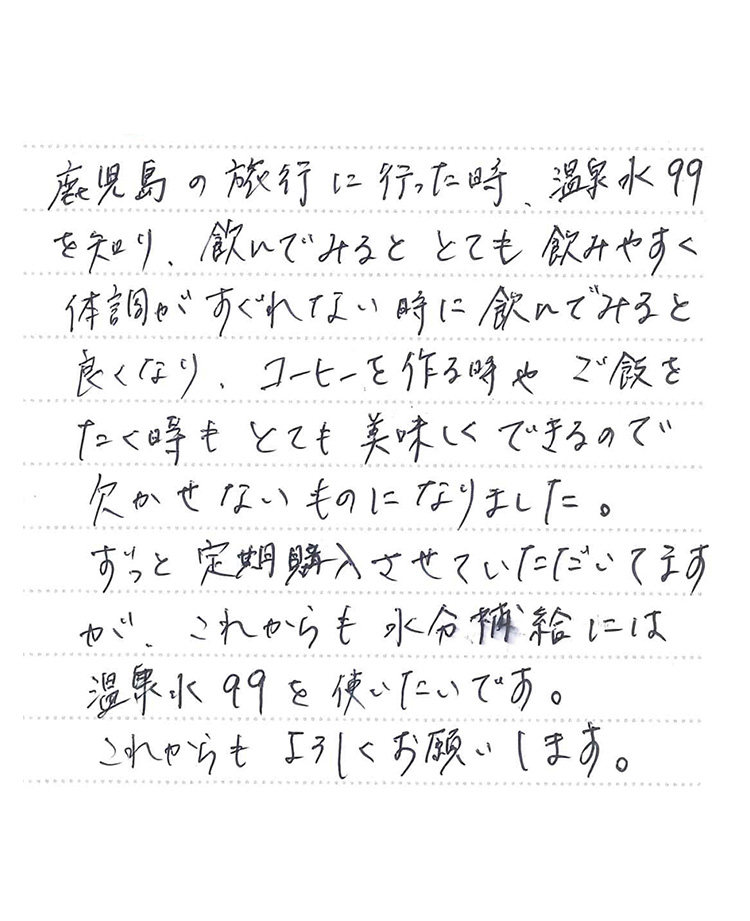 鹿児島の旅行に行った時、温泉水99
を知り、飲んでみると とても飲みやすく
体調がすぐれない時に飲んでみると
良くなり、コーヒーを作る時や ご飯を
たく時も とても美味しくできるので
欠かせないものになりました。
ずっと定期購入させていただいてます
が、これからも水分補給には
温泉水99を使いたいです。
これからも よろしくお願いします。